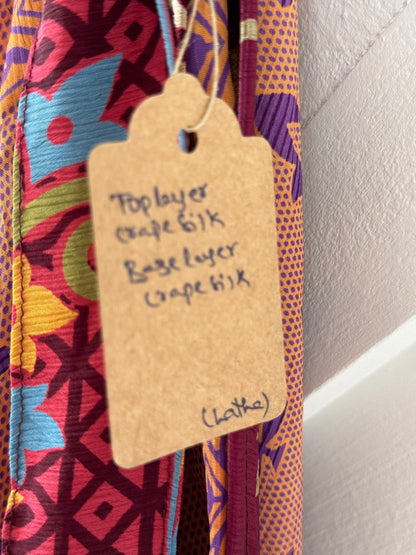 Top layer
crape silk
Base layer
crape silk
(Latha)